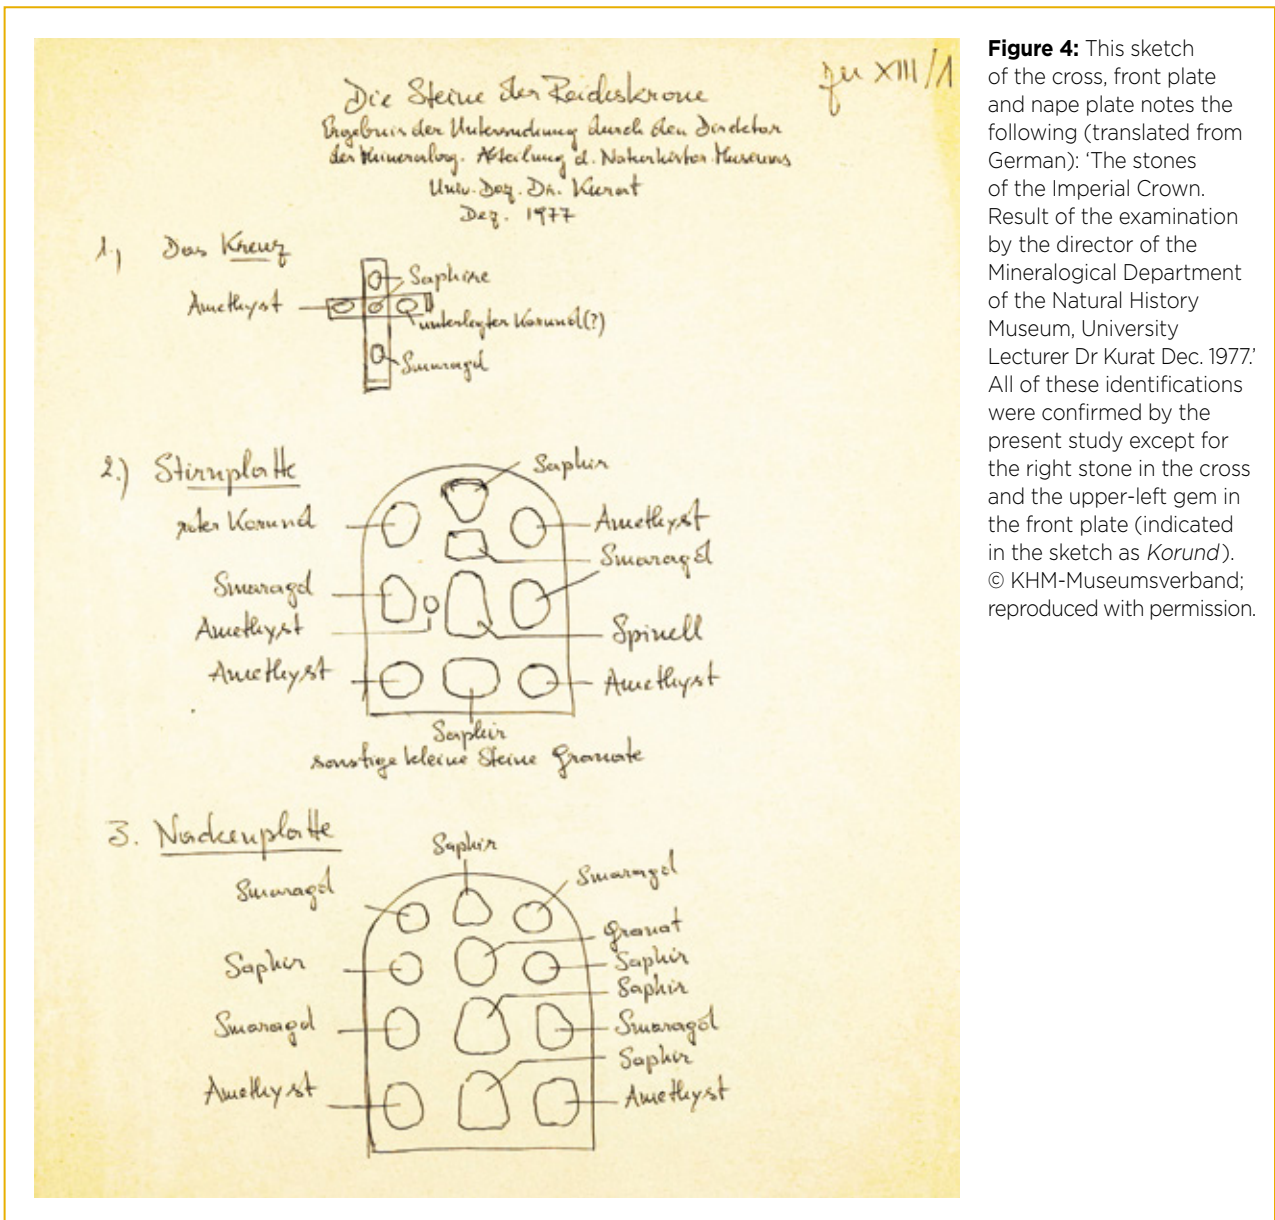 zu XIII/1
Die Steine der Reichskrone
Ergebnis der Untersuchung durch den Direktor
der Mineralog. Abteilung d. Naturhistor. Museums
Univ. Doz. Dr. Kurat
Dez. 1977
1.) Das Kreuz
Saphire
Amethyst
unterlegter Korund(?)
Smaragd
2.) Stirnplatte
Saphir
roter Korund
Amethyst
Smaragd
Smaragd
Amethyst
Spinell
Amethyst
Amethyst
Saphir
sonstige kleine Steine Granate
3. Nackenplatte
Saphir
Smaragd
Smaragd
Granat
Saphir
Saphir
Saphir
Smaragd
Smaragd
Saphir
Amethyst
Amethyst
Figure 4: This sketch
of the cross, front plate
and nape plate notes the
following (translated from
German): ‘The stones
of the Imperial Crown.
Result of the examination
by the director of the
Mineralogical Department
of the Natural History
Museum, University
Lecturer Dr Kurat Dec. 1977.’
All of these identifications
were confirmed by the
present study except for
the right stone in the cross
and the upper-left gem in
the front plate (indicated
in the sketch as Korund).
© KHM-Museumsverband;
reproduced with permission.